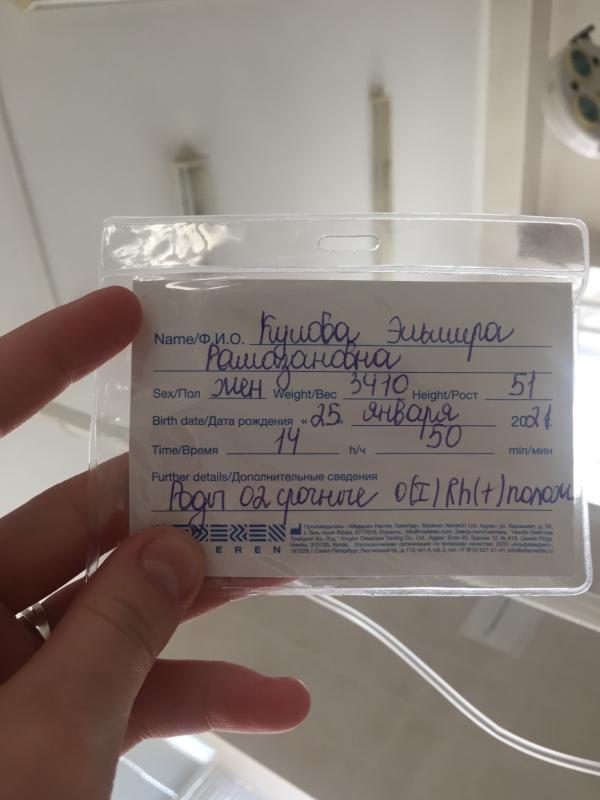 Name/Ф.И.О. Кулова Эльмира
Рамазановна
Sex/Пол жен Weight/Вес 3410 Height/Рост 51
Birth date/Дата рождения «25» января 2021
Time/Время 14 h/ч 50 min/мин
Further details/Дополнительные сведения
Роды 02 срочные O(I) Rh(+) полож
EREN